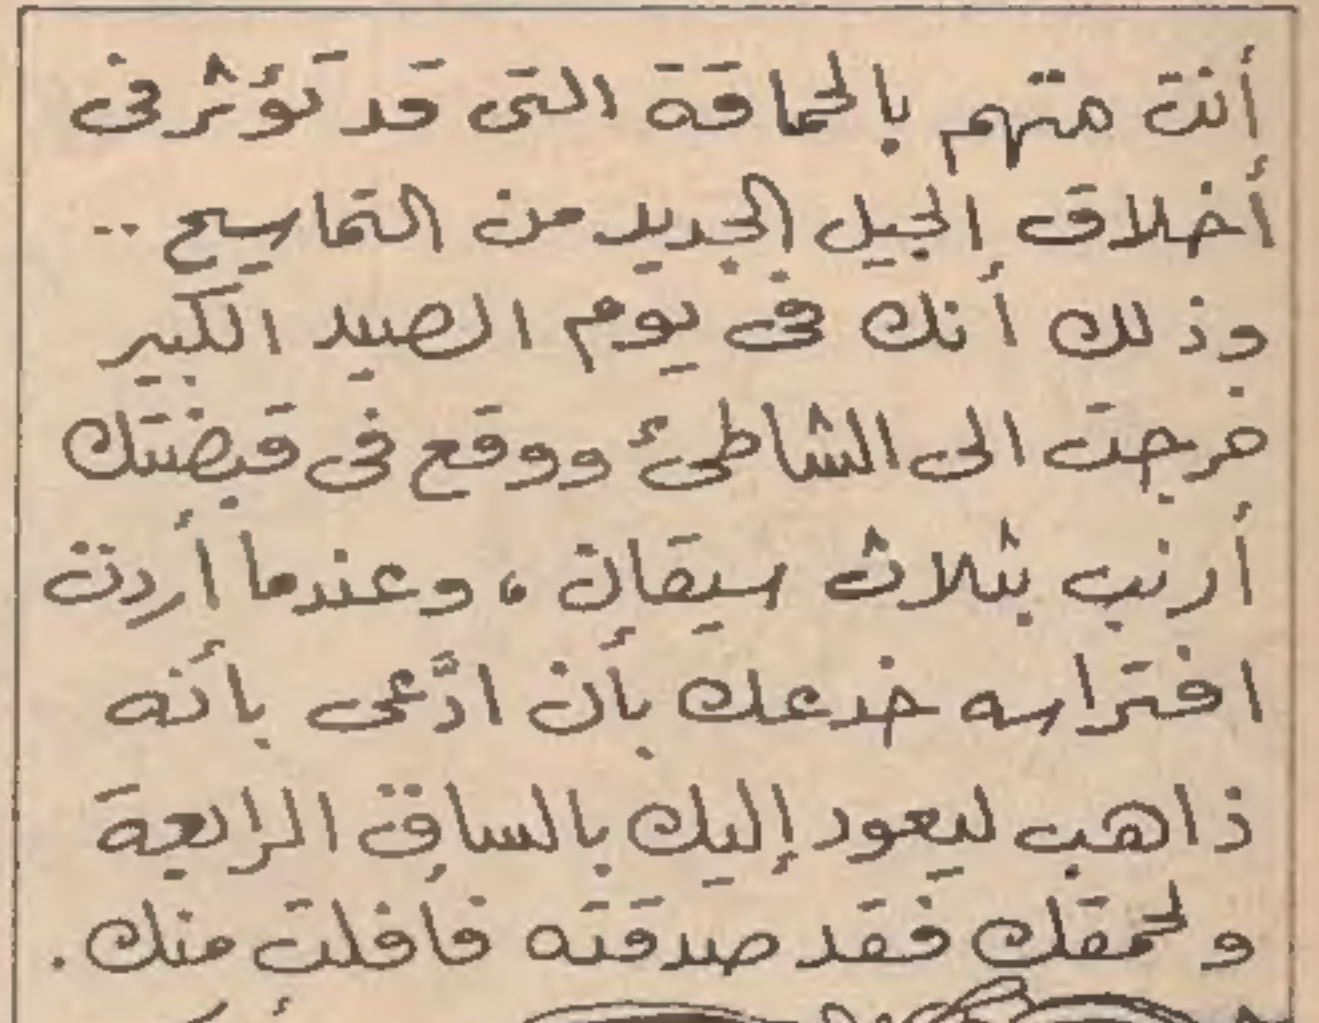 أنت متهم بالحماقة التى قد تؤثر فى
أخلاق الجيل الجديد من التماسيح ..
وذلك أنك فى يوم الصيد الكبير
خرجت الى الشاطئ ووقع فى قبضتك
أرنب بثلاث سيقان ، وعندما أردت
افتراسه خدعك بأن ادَّعى بأنه
ذاهب ليعود إليك بالساق الرابعة
ولحمقك فقد صدقته فافلت منك .